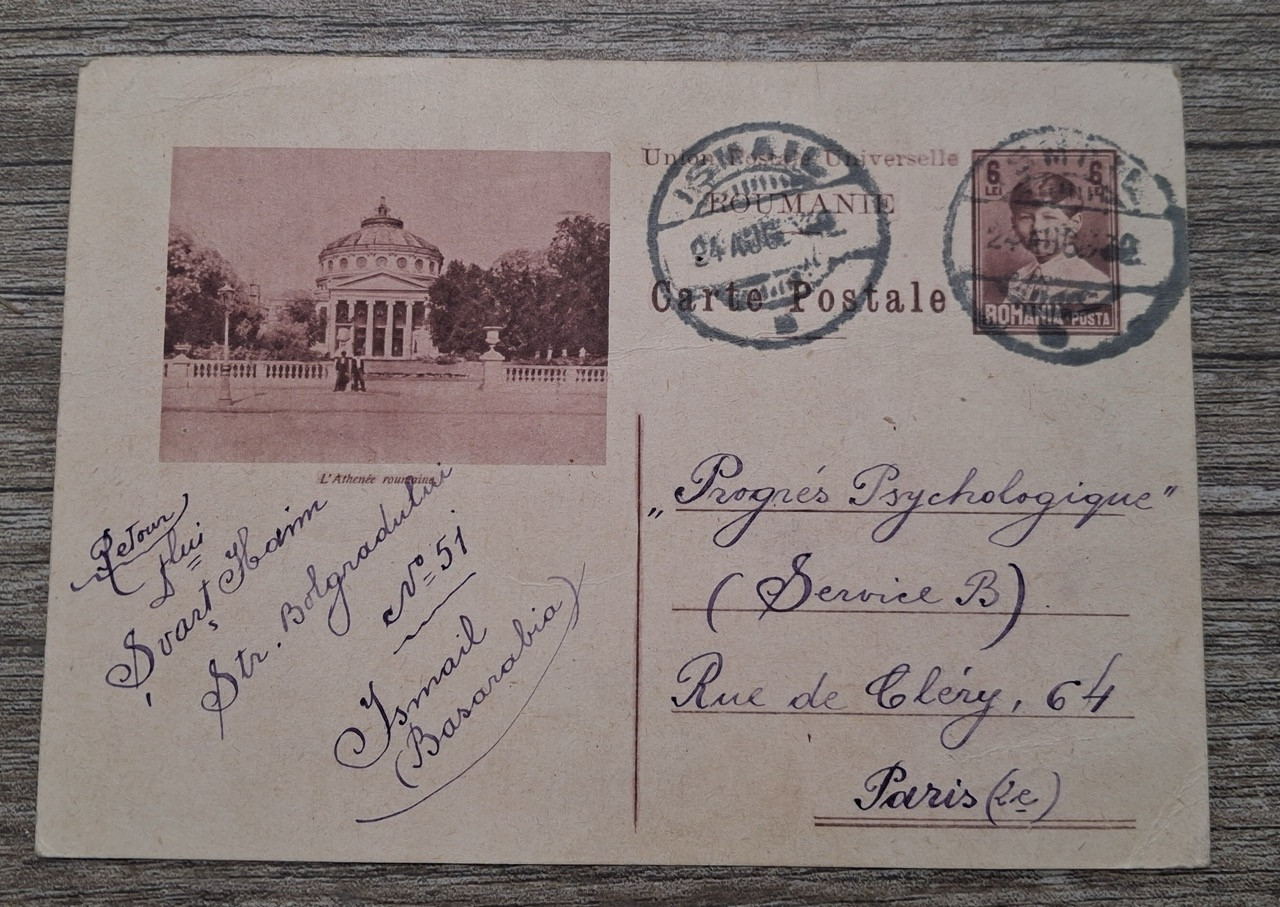 Union Postale Universelle
ROUMANIE
Carte Postale
6 6
LEI LEI
ROMANIA POSTA
ISMAIL
24 AUG
24 AUG
L'Athenée roumaine
Retour
Dlui
Șvarț Haim
Str. Bolgradului
No 51
Ismail
(Basarabia)
„Progrés Psychologique"
(Service B)
Rue de Cléry, 64
Paris (2e)